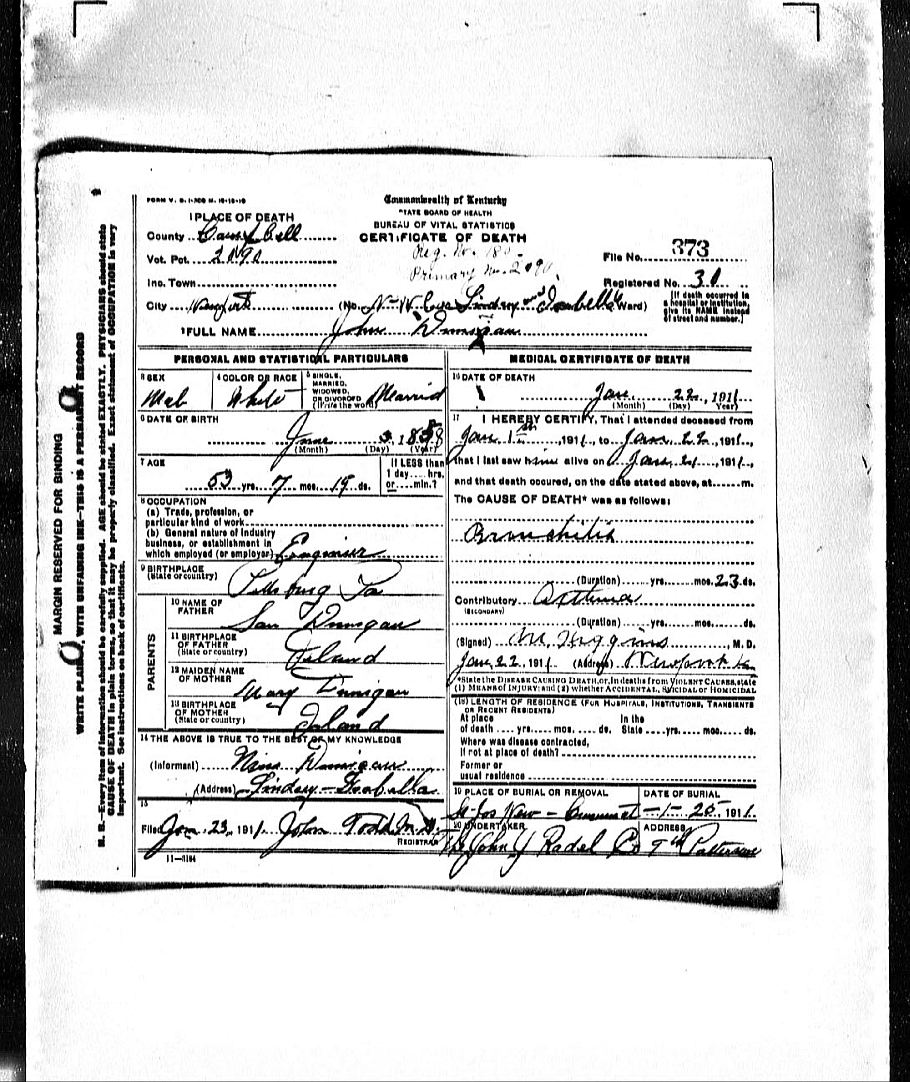 FORM V. S.
Commonwealth of Kentucky
STATE BOARD OF HEALTH
BUREAU OF VITAL STATISTICS
CERTIFICATE OF DEATH
1 PLACE OF DEATH
County Campbell
Vot. Pct. 2090
Reg. No. 180
Primary No. 2090
File No. 373
Inc. Town
Registered No. 30
City Newport (No. N.W. Cor Lindsey and Isabella Ward)
[If death occurred in a hospital or institution, give its NAME instead of street and number.]
2 FULL NAME John Dunigan
PERSONAL AND STATISTICAL PARTICULARS
3 SEX
Male
4 COLOR OR RACE
White
5 SINGLE, MARRIED, WIDOWED, OR DIVORCED (Write the word)
Married
6 DATE OF BIRTH
June 3, 1858
(Month) (Day) (Year)
7 AGE
53 yrs. 7 mos. 19 ds.
If LESS than 1 day.... hrs. or.... min.?
8 OCCUPATION
(a) Trade, profession, or particular kind of work
(b) General nature of industry business, or establishment in which employed (or employer) Engineer
9 BIRTHPLACE
(State or country)
Pittsburg Pa
PARENTS
10 NAME OF FATHER
Dunigan
11 BIRTHPLACE OF FATHER
(State or country)
Ireland
12 MAIDEN NAME OF MOTHER
Mary Dunigan
13 BIRTHPLACE OF MOTHER
(State or country)
Ireland
14 THE ABOVE IS TRUE TO THE BEST OF MY KNOWLEDGE
(Informant) Dunigan
(Address) Lindsey - Isabella
15
Filed Jan. 23, 1911 John Todd M.D.
REGISTRAR
11—3184
MEDICAL CERTIFICATE OF DEATH
16 DATE OF DEATH
Jan. 22, 1911
(Month) (Day) Year)
17 I HEREBY CERTIFY, That I attended deceased from
Jan 1st, 1911, to Jan. 22, 1911,
that I last saw him alive on Jan. 21, 1911,
and that death occured, on the date stated above, at m.
The CAUSE OF DEATH* was as follows:
Bronchitis
(Duration) yrs. mos. 23 ds.
Contributory Asthma
(SECONDARY)
(Duration) yrs. mos. ds.
(Signed) Higgins, M. D.
Jan. 22, 1911 (Address) Newport
*State the DISEASE CAUSING DEATH, or, in deaths from VIOLENT CAUSES, state
(1) MEANS OF INJURY; and (2) whether ACCIDENTAL, SUICIDAL or HOMICIDAL
(18) LENGTH OF RESIDENCE (FOR HOSPITALS, INSTITUTIONS, TRANSIENTS OR RECENT RESIDENTS)
At place of death .... yrs. .... mos. .... ds. In the State .... yrs. .... mos. .... ds.
Where was disease contracted, if not at place of death?
Former or usual residence
19 PLACE OF BURIAL OR REMOVAL
St Jos New -
DATE OF BURIAL
1-25, 1911.
20 UNDERTAKER
The John J Radel Co
ADDRESS
7th Patterson
MARGIN RESERVED FOR BINDING
WRITE PLAINLY, WITH UNFADING INK—THIS IS A PERMANENT RECORD
N. B.—Every item of information should be carefully supplied. AGE should be stated EXACTLY. PHYSICIANS should state
CAUSE OF DEATH in plain terms, so that it may be properly classified. Exact statement of OCCUPATION is very
important. See instructions on back of certificate.